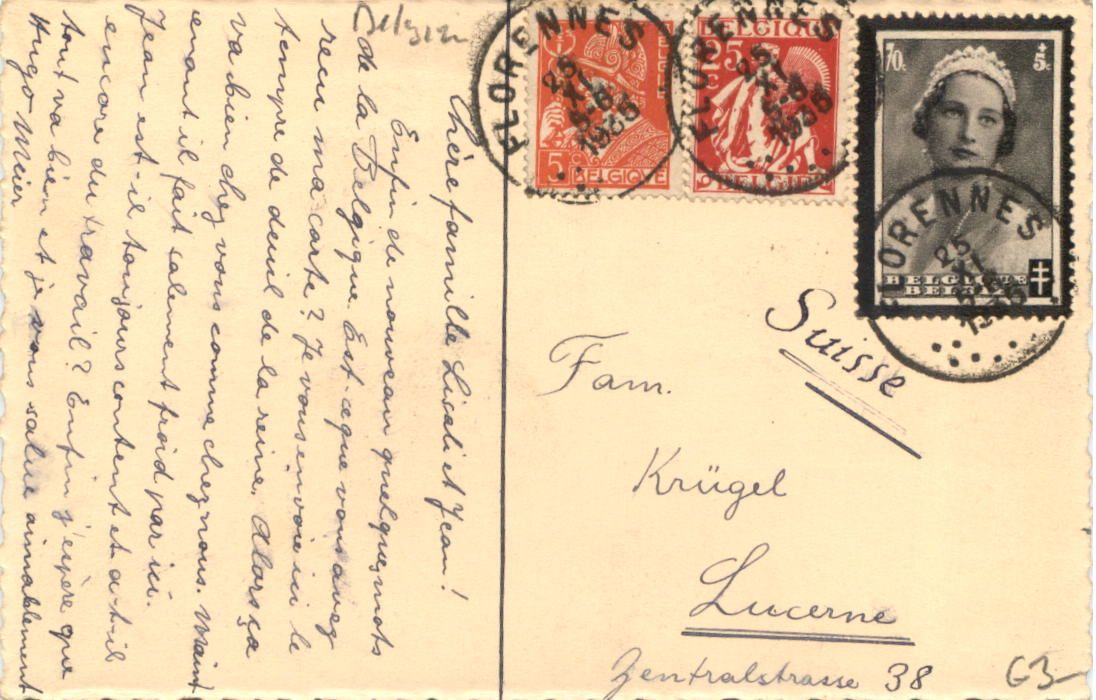 Belgien
Chère famille Lisali et Jean!
Enfin de nouveau quelques mots
de la Belgique. Est ce que vous avez
recu ma carte? Je vous envoie ici le
tempre de deuil de la reine. Alors ça
va bien chez vous comme chez nous. Maint
enant il fait salement froid par ici.
Jean est-il toujours content et a-t-il
encore du travail? Enfin j'espère que
tout va bien et je vous salue aimablement
Hugo Meier
FLORENNES
25
XI
1935
5c
BELGIQUE
FLORENNES
25
XI
1935
BELGIQUE
25c
BELGIE
70c.
+
5c
BELGIQUE
BELGIË
FLORENNES
25
XI
1935
Suisse
Fam.
Krügel
Lucerne
Zentralstrasse 38
G3